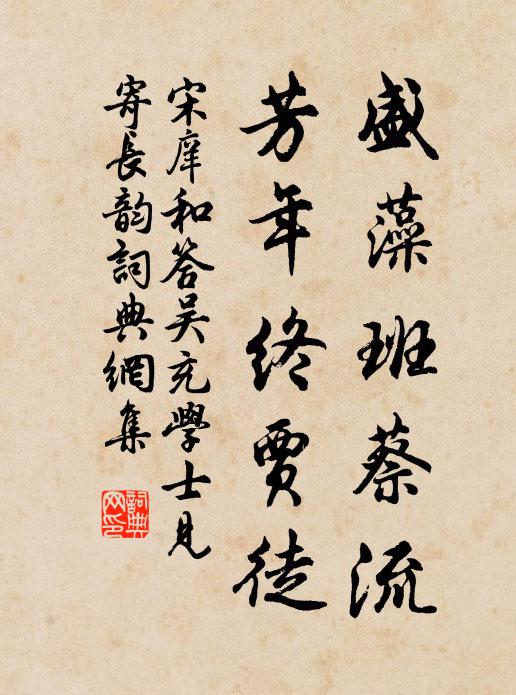 盛藻班蔡流
芳年終賈徒
宋庠和答吴充學士見
寄長韵詞典網集
詞典网印